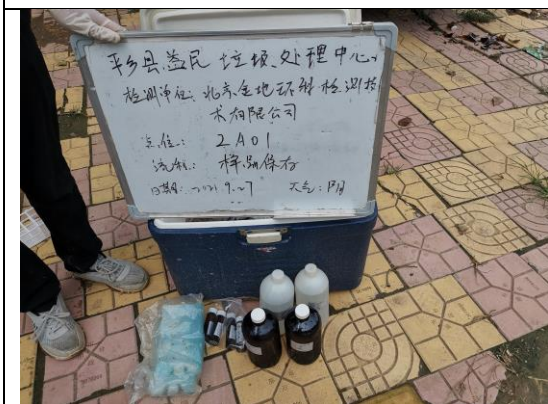 平乡县益民垃圾处理中心
检测单位:北京金地环科检测技
术有限公司
点位:2A01
流程:样品保存
日期:2021.9.7 天气:阴